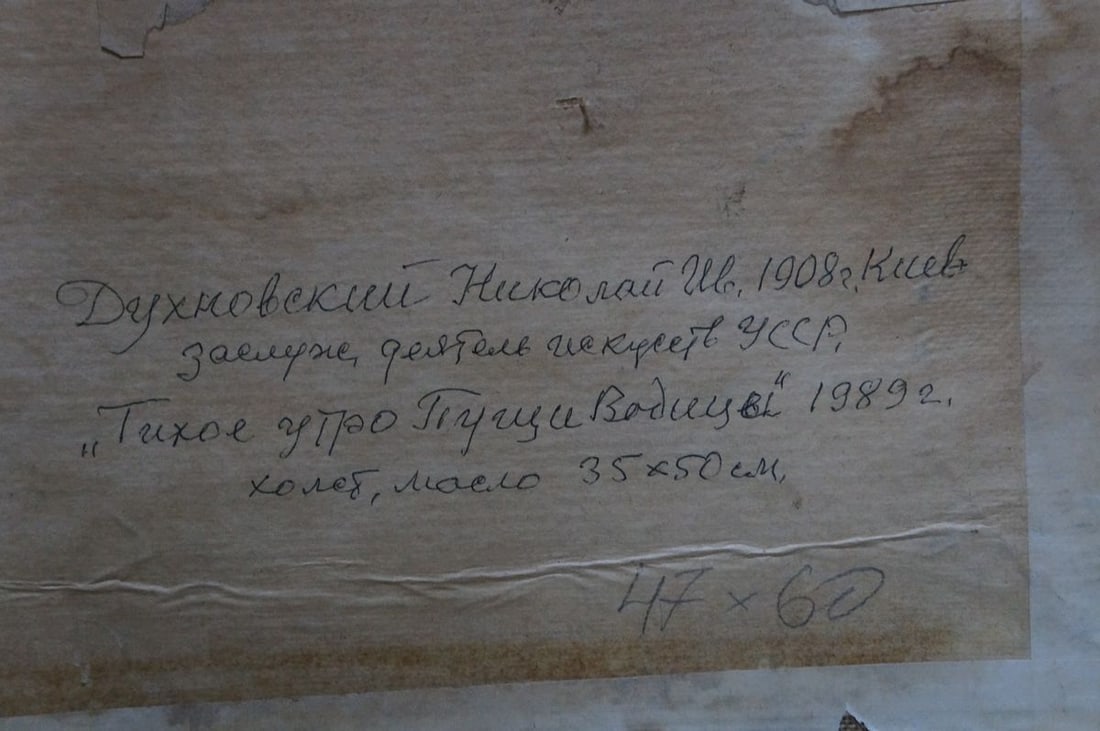 Духновский Николай Ив. 1908г. Киев
заслуж. деятель искусств УССР,
„Тихое утро Пущи Водицы“ 1989г.
холст, масло 35×50см.
47×60